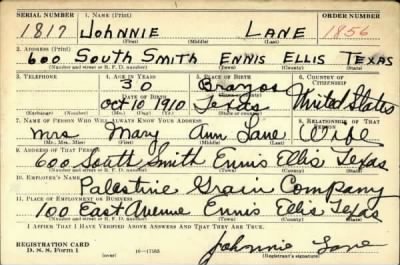 SERIAL NUMBER 1. NAME (Print) ORDER NUMBER
1817 JOHNNIE LANE 1856
(First) (Middle) (Last)
2. ADDRESS (Print)
600 SOUTH SMITH ENNIS ELLIS TEXAS
(Number and street or R. F. D. number) (Town) (County) (State)
3. TELEPHONE 4. AGE IN YEARS 5. PLACE OF BIRTH 6. COUNTRY OF CITIZENSHIP
30 Brazos
DATE OF BIRTH
Oct 10 1910 Texas United States
(Exchange) (Number) (Mo.) (Day) (Yr.) (State or country)
7. NAME OF PERSON WHO WILL ALWAYS KNOW YOUR ADDRESS 8. RELATIONSHIP OF THAT PERSON
Mrs Mary Ann Lane Wife
(Mr., Mrs., Miss) (First) (Middle) (Last)
9. ADDRESS OF THAT PERSON
600 South Smith Ennis Ellis Texas
(Number and street or R. F. D. number) (Town) (County) (State)
10. EMPLOYER'S NAME
Palestine Grain Company
11. PLACE OF EMPLOYMENT OR BUSINESS
100 East Avenue Ennis Ellis Texas
(Number and street or R. F. D. number) (Town) (County) (State)
I AFFIRM THAT I HAVE VERIFIED ABOVE ANSWERS AND THAT THEY ARE TRUE.
REGISTRATION CARD
D. S. S. Form 1 (over) Johnnie Lane
(Registrant's signature)